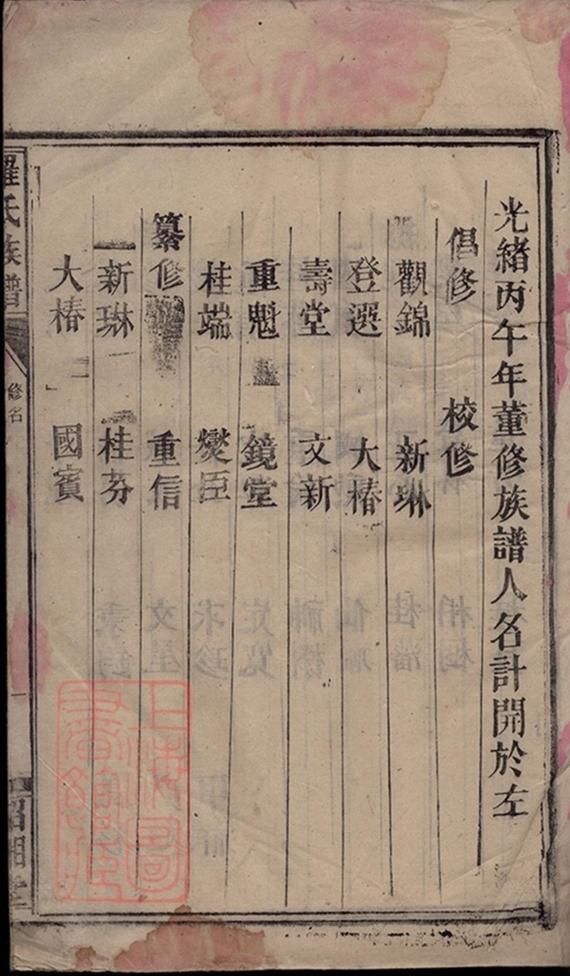 光緒丙午年董修族譜人名計開於左
倡修 校修
觀錦 新琳
登選 大椿
壽堂 文新
重魁 鏡堂
桂端 燮臣
纂修 重信
新琳 桂芬
大椿 國賓
羅氏族譜
修名
一